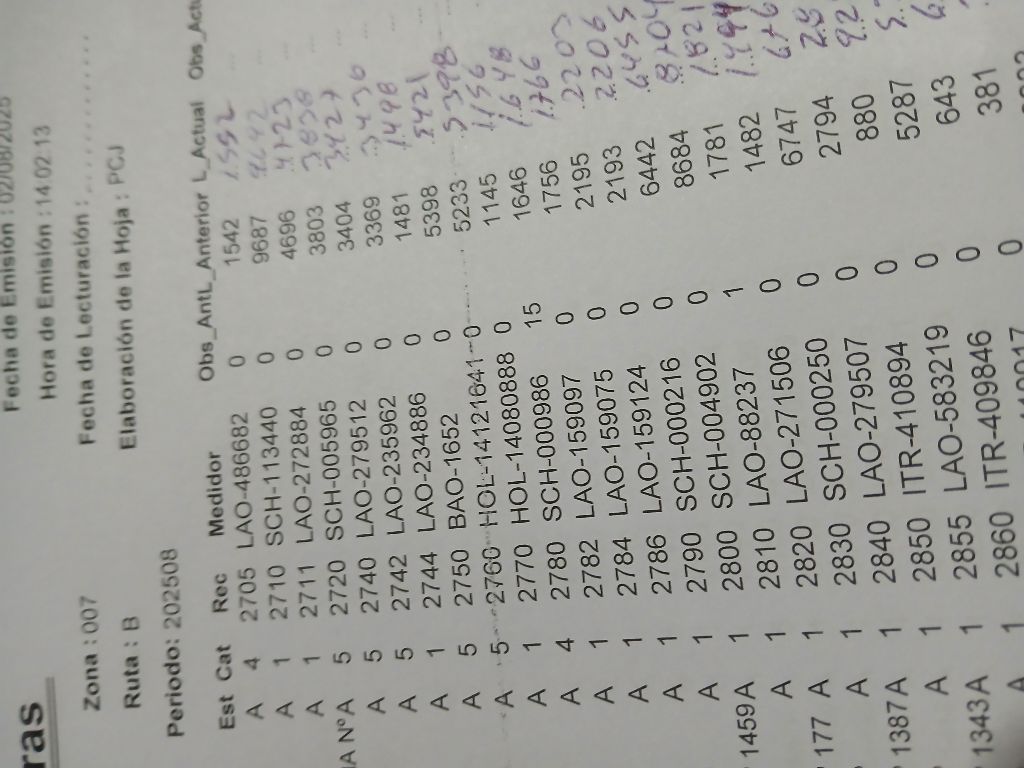 ras
Fecha de Emisión : 02/08/2025
Hora de Emisión : 14:02:13
Zona : 007 Fecha de Lecturación :
Ruta : B Elaboración de la Hoja : PCJ
Periodo: 202508
Est Cat Rec Medidor Obs_Ant L_Anterior L_Actual Obs_Actu
A 4 2705 LAO-486682 0 1542 1552
A 1 2710 SCH-113440 0 9687 9692
A 1 2711 LAO-272884 0 4696 4723
A Nº A 5 2720 SCH-005965 0 3803 3830
A 5 2740 LAO-279512 0 3404 3427
A 5 2742 LAO-235962 0 3369 3430
A 1 2744 LAO-234886 0 1481 1498
A 5 2750 BAO-1652 0 5398 5421
A 5 2760 HOL-14121641 0 5233 5398
A 1 2770 HOL-14080888 0 1145 1156
A 4 2780 SCH-000986 15 1646 1648
A 1 2782 LAO-159097 0 1756 1766
A 1 2784 LAO-159075 0 2195 2203
A 1 2786 LAO-159124 0 2193 2206
A 1 2790 SCH-000216 0 6442 6455
1459 A 1 2800 SCH-004902 0 8684 8704
A 1 2810 LAO-88237 1 1781 1821
177 A 1 2820 LAO-271506 0 1482 1494
A 1 2830 SCH-000250 0 6747 676
1387 A 1 2840 LAO-279507 0 2794
A 1 2850 ITR-410894 0 880
1343 A 1 2855 LAO-583219 0 5287
A 1 2860 ITR-409846 0 643
0 381